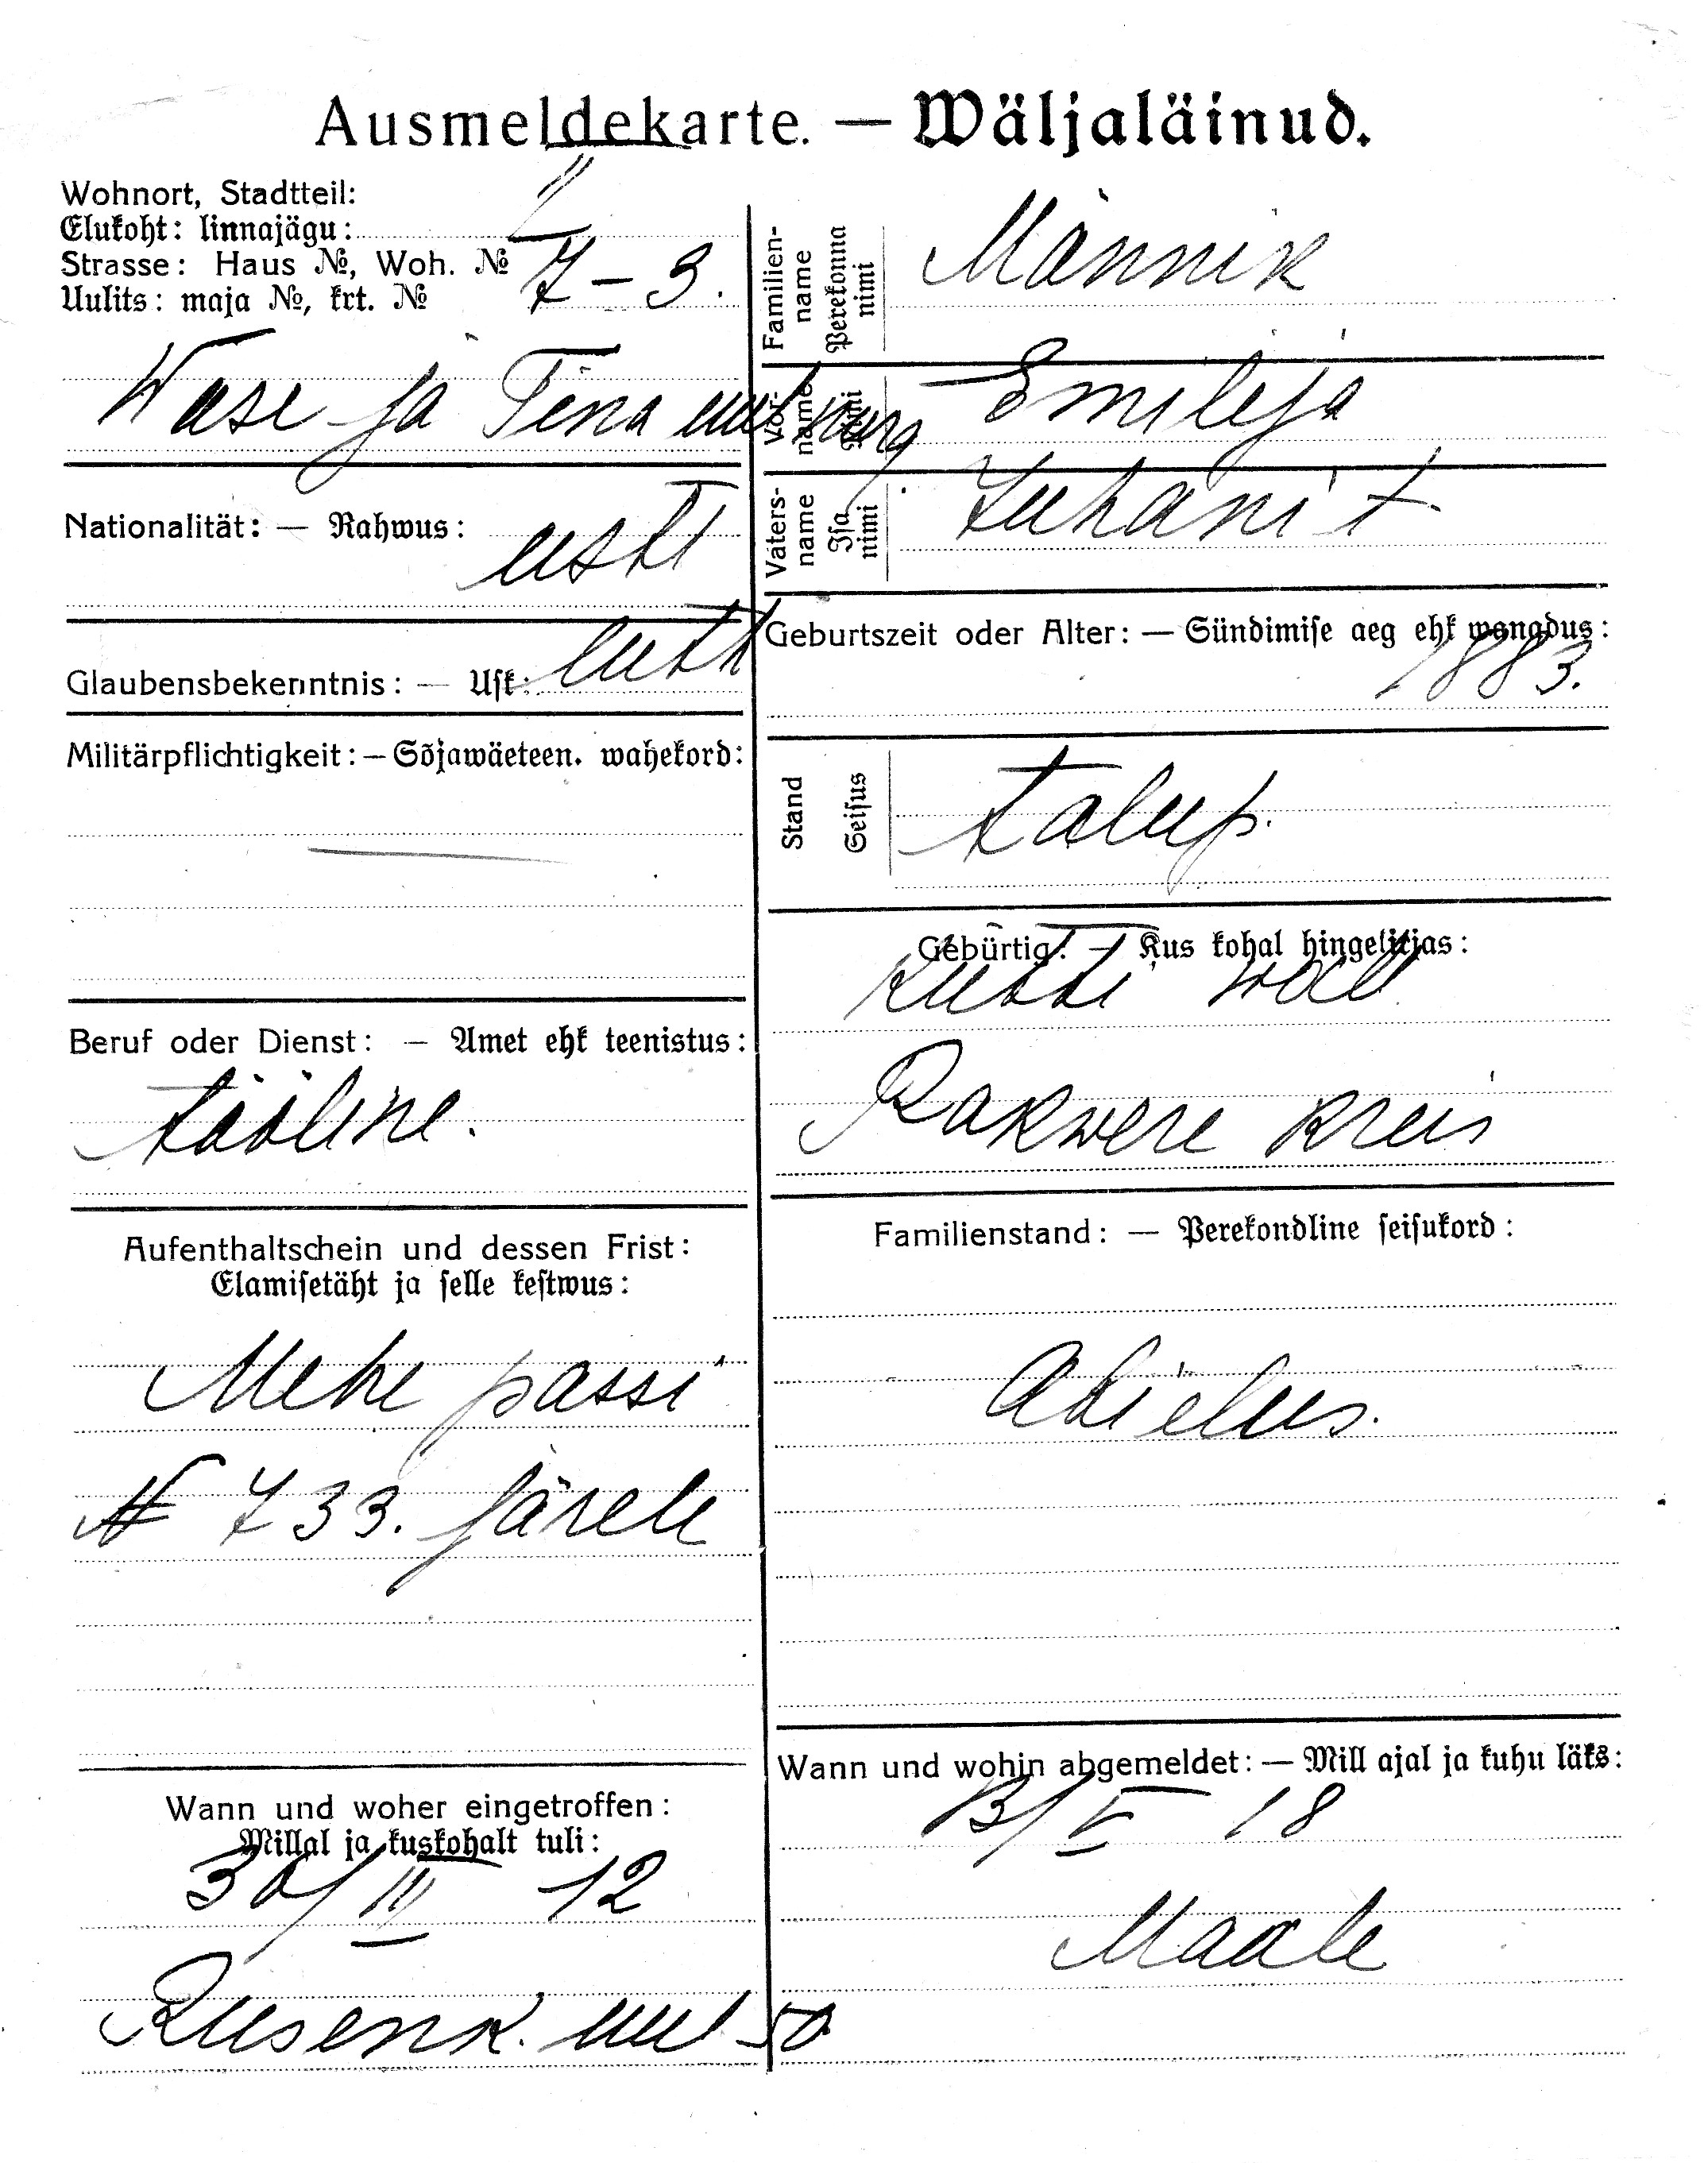 Ausmeldekarte. — Wäljaläinud.
Wohnort, Stadtteil:
Elukoht: linnajägu: II
Strasse: Haus №, Woh. №
Uulits: maja №, krt. № 7 – 3.
Wase ja Tina uul nurg.
Nationalität: — Rahwus: eesti
Glaubensbekenntnis: — Usk: luth
Militärpflichtigkeit: — Sõjawäeteen. wahekord:
—
Beruf oder Dienst: — Amet ehk teenistus:
tööline.
Aufenthaltschein und dessen Frist:
Elamisetäht ja selle kestwus:
Mehe passi
N 733. järele
Wann und woher eingetroffen:
Millal ja kuskohalt tuli:
30/III 12
Rusenk. uul 50
Familien-
name
Perekonna
nimi
Männik
Vor-
name
Nimi
Emilija
Vaters-
name
Isa
nimi
Juhani t
Geburtszeit oder Alter: — Sündimise aeg ehk wanadus:
1883.
Stand
Seisus
talup.
Gebürtig: — Kus kohal hingekirjas:
Kütti wall
Rakwere kreis
Familienstand: — Perekondline seisukord:
Abielus.
Wann und wohin abgemeldet: — Mill ajal ja kuhu läks:
13/V 18
Maale